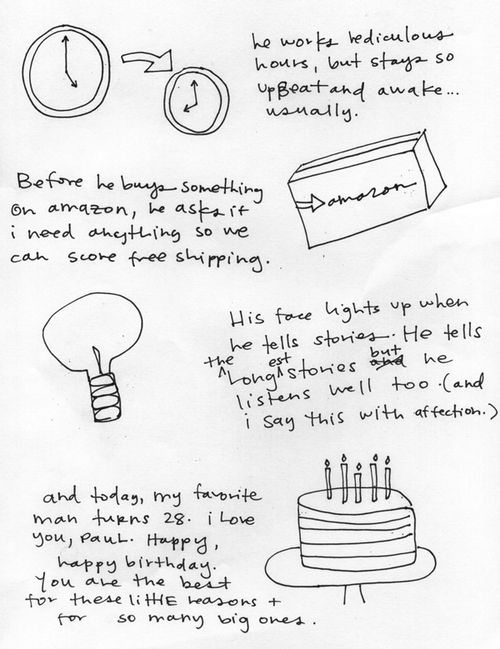 he works rediculous
hours, but stays so
upBeat and awake...
usually.
amazon
Before he buys something
on amazon, he asks if
i need anything so we
can score free shipping.
His face lights up when
he tells stories. He tells
the longest stories and but he
listens well too. (and
i say this with affection.)
and today, my favorite
man turns 28. i love
you, Paul. Happy,
happy birthday.
You are the best
for these little reasons +
for so many big ones.